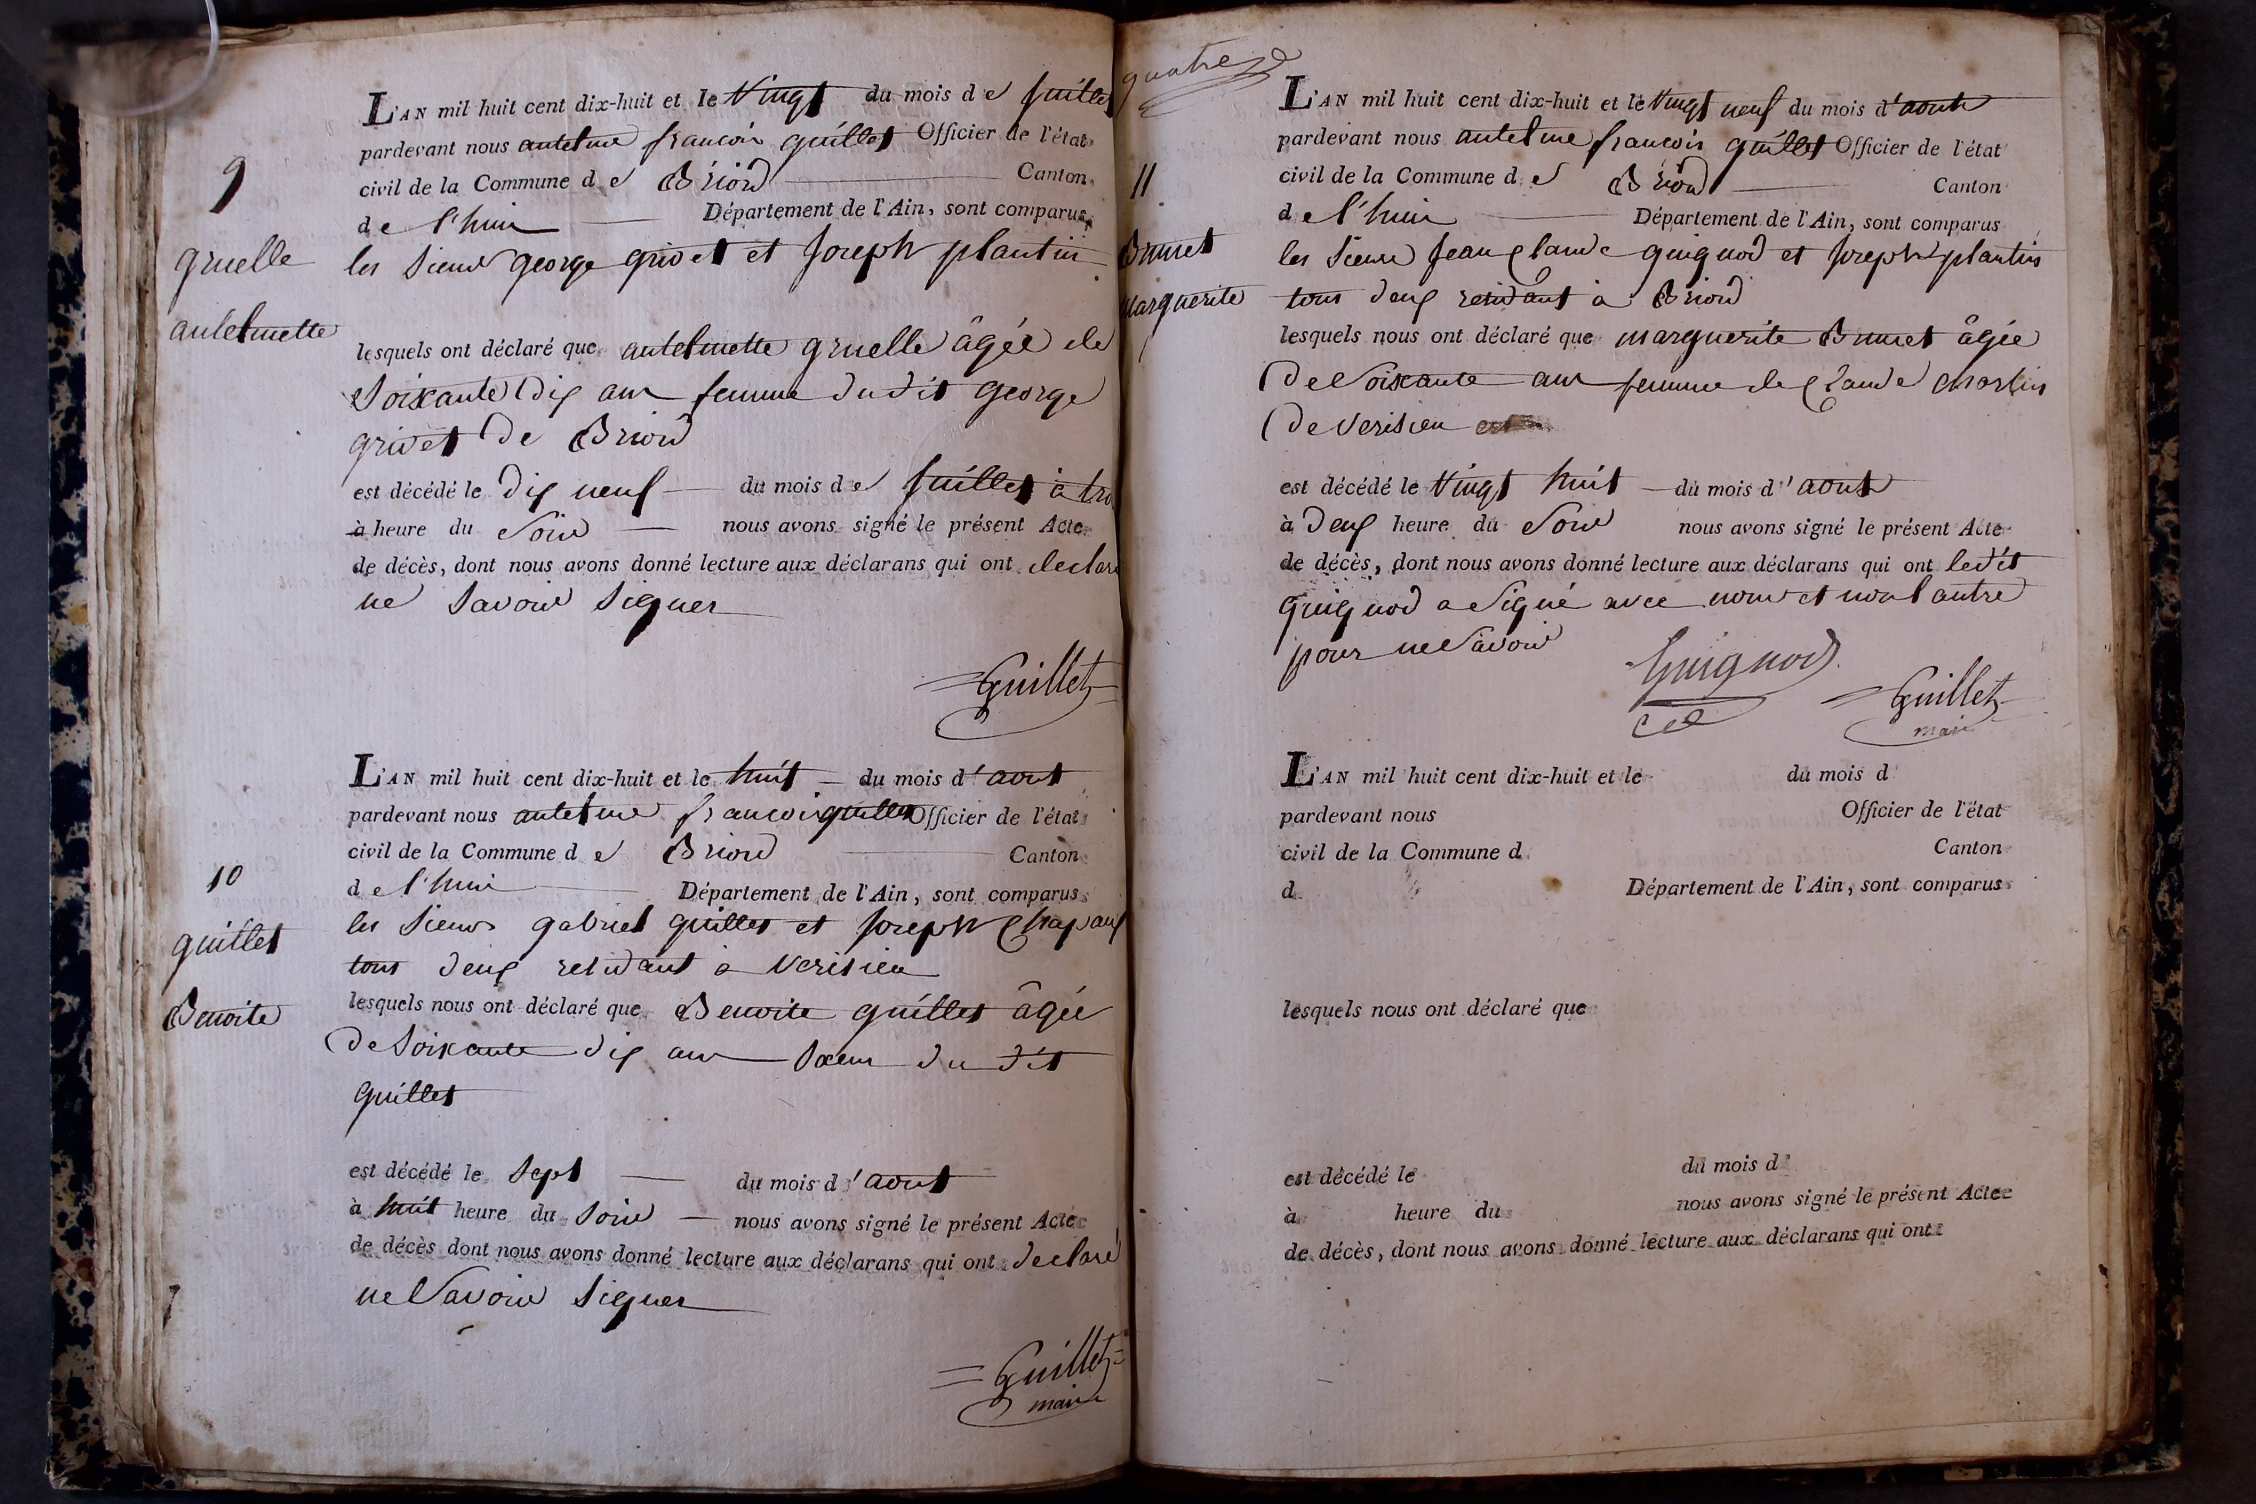 9
gruelle
antelmette
L'AN mil huit cent dix-huit et le Vingt du mois de juillet
pardevant nous antelme francois guillet Officier de l'état
civil de la Commune de Briord Canton
de l'huis Département de l'Ain, sont comparus
les sieurs george grivet et joseph plantin
lesquels ont déclaré que antelmette gruelle âgée de
soixante dix ans femme du dit george
grivet de Briord
est décédé le dix neuf du mois de juillet à tro
à heure du soir nous avons signé le présent Acte
de décès, dont nous avons donné lecture aux déclarans qui ont declaré
ne savoir signer
Guillet
10
guillet
Benoite
L'AN mil huit cent dix-huit et le huit du mois d'aout
pardevant nous antelme francois guillet Officier de l'état
civil de la Commune de Briord Canton
de l'huis Département de l'Ain, sont comparus
les sieurs gabriel guillet et joseph
tous deux residant a verisieu
lesquels nous ont déclaré que Benoite guillet âgée
de soixante dix ans soeur du dit
guillet
est décédé le sept du mois d'aout
à huit heure du soir nous avons signé le présent Acte
de décès dont nous avons donné lecture aux déclarans qui ont declaré
ne savoir signer
Guillet
maire
quatre
11
Brunet
marguerite
L'AN mil huit cent dix-huit et le Vingt neuf du mois d'aout
pardevant nous antelme francois guillet Officier de l'état
civil de la Commune de Briord Canton
de l'huis Département de l'Ain, sont comparus
les sieurs jean claude guignod et joseph plantin
tous deux residant à Briord
lesquels nous ont déclaré que marguerite Brunet âgée
de soixante ans femme de claude
de verisieu
est décédé le Vingt huit du mois d'aout
à deux heure du soir nous avons signé le présent Acte
de décès, dont nous avons donné lecture aux déclarans qui ont ledit
guignod a signé avec nous et non l autre
pour ne savoir
Guignod
Guillet
maire
L'AN mil huit cent dix-huit et le du mois d
pardevant nous Officier de l'état
civil de la Commune d Canton
d Département de l'Ain, sont comparus
lesquels nous ont déclaré que
est décédé le du mois d
à heure du nous avons signé le présent Acte
de décès, dont nous avons donné lecture aux déclarans qui ont